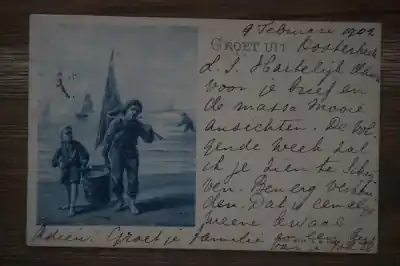 9 Februari 1902
GROET UIT Oosterbeek
L. S. Hartelijk dank
voor je brief en
de massa mooie
ansichten. De vol
gende week zal
ik je zien te schrij
ven. Ben erg verkou
den. Dat is een alge
meene kwaal
Adieu. Groet je familie
van